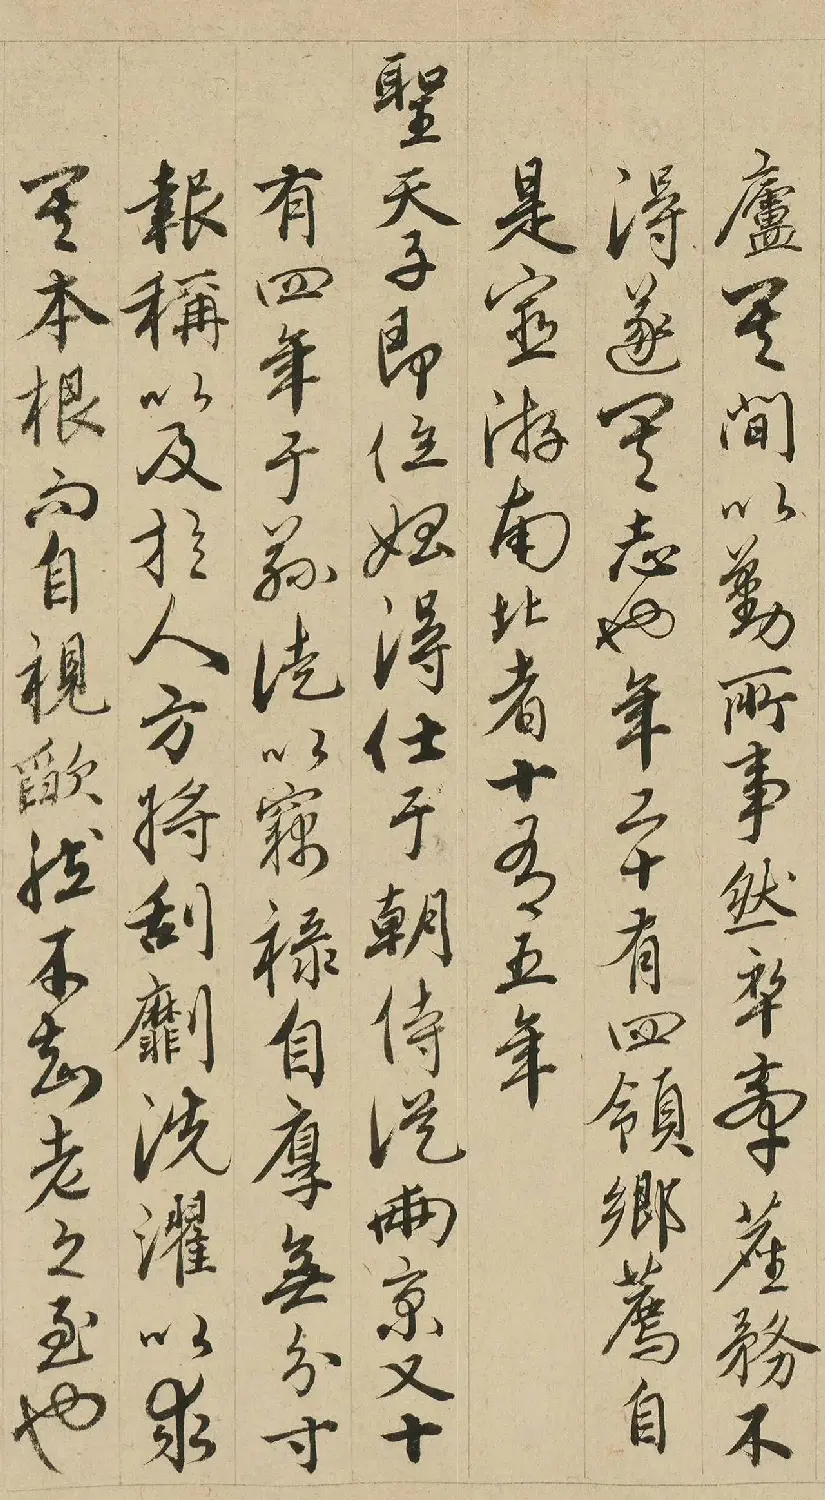 廬其間以勤所事然卒牽塵務不
得遂其志也年二十有四領鄉薦自
是宦游南北者十有五年
聖天子即位始得仕于朝侍從兩京又十
有四年于茲徒以竊祿自辱無分寸
報稱以及於人方將刮劘洗濯以求
其本根而自視歉然不知老之至也